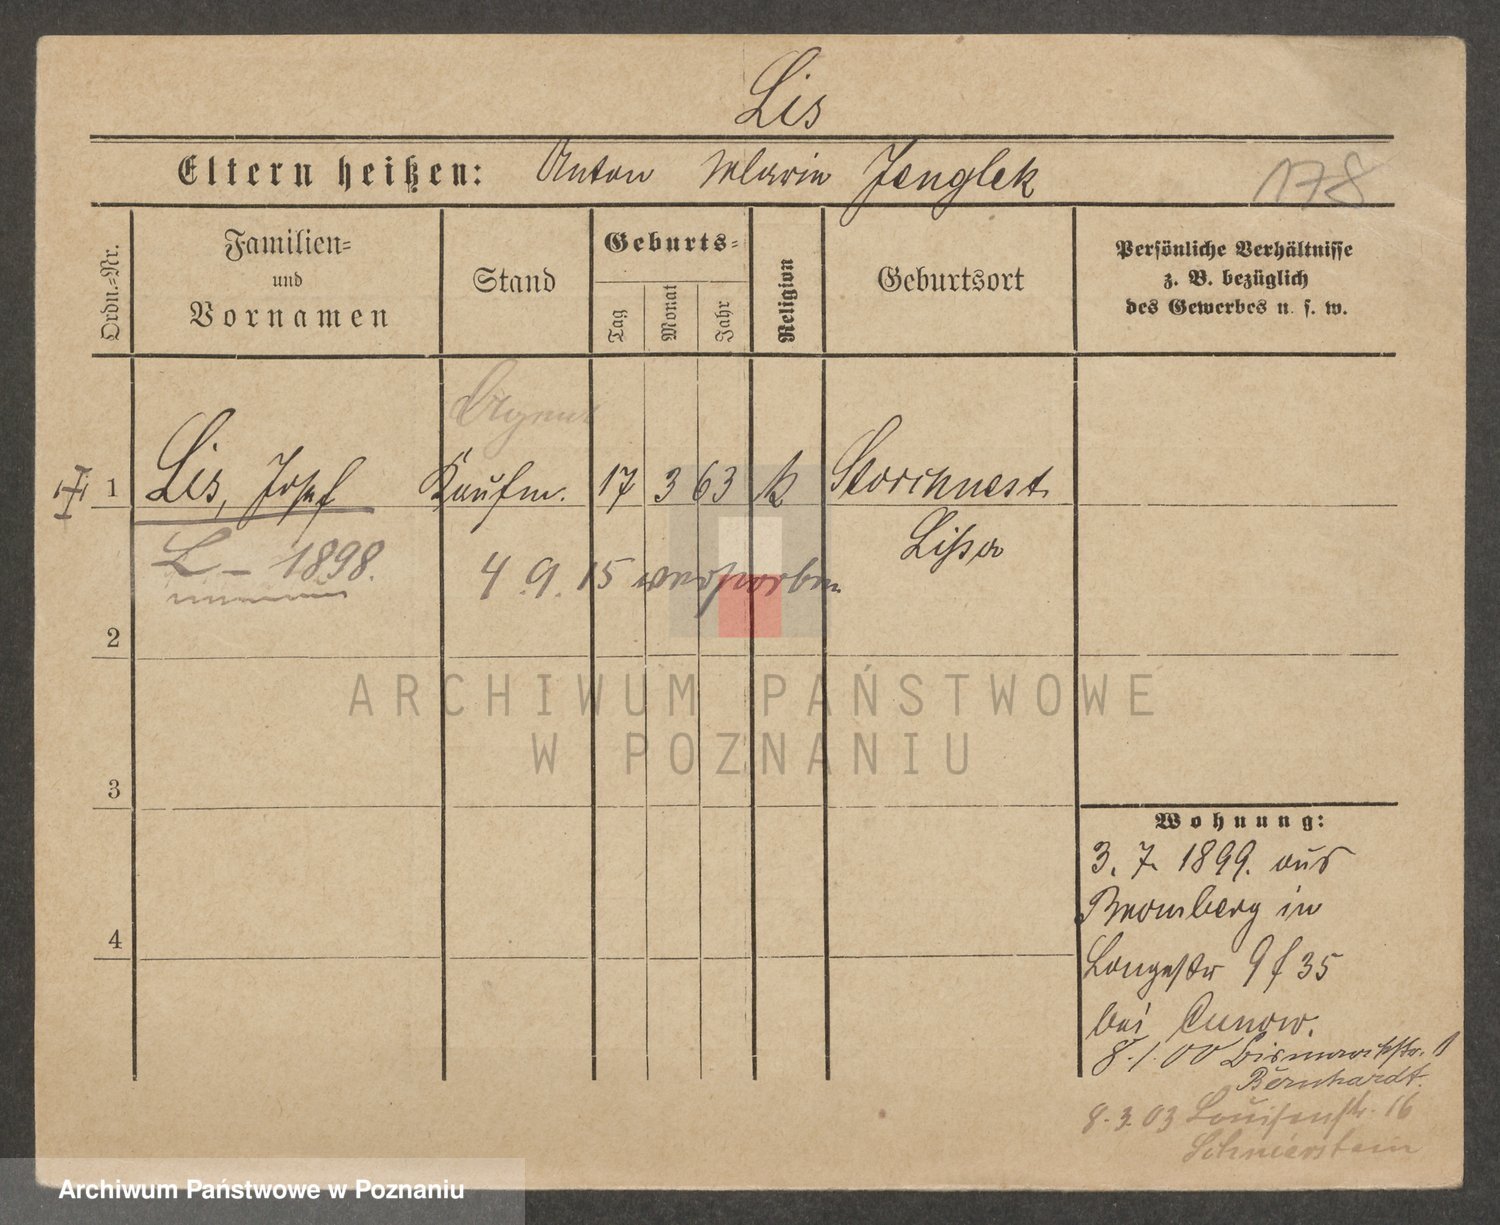 Lis
Eltern heißen: Anton Marie Jenglek
178
Ordn.-Nr.
Familien-
und
Vornamen
Stand
Geburts-
Tag
Monat
Jahr
Religion
Geburtsort
Persönliche Verhältnisse
z. B. bezüglich
des Gewerbes u. s. w.
Agent
1 Lis, Josef Kaufm. 17 3 63 k Storchnest
Lissa
L – 1898.
4. 9. 15 verstorben
2
ARCHIWUM PAŃSTWOWE
W POZNANIU
3
4
Wohnung:
3. 7. 1899. aus
Bromberg in
Langestr 9 f 35
bei Cunow.
8. 1. 00 Bismarckstr. 1
Bernhardt.
8. 3. 03 Louisenstr. 16
Archiwum Państwowe w Poznaniu